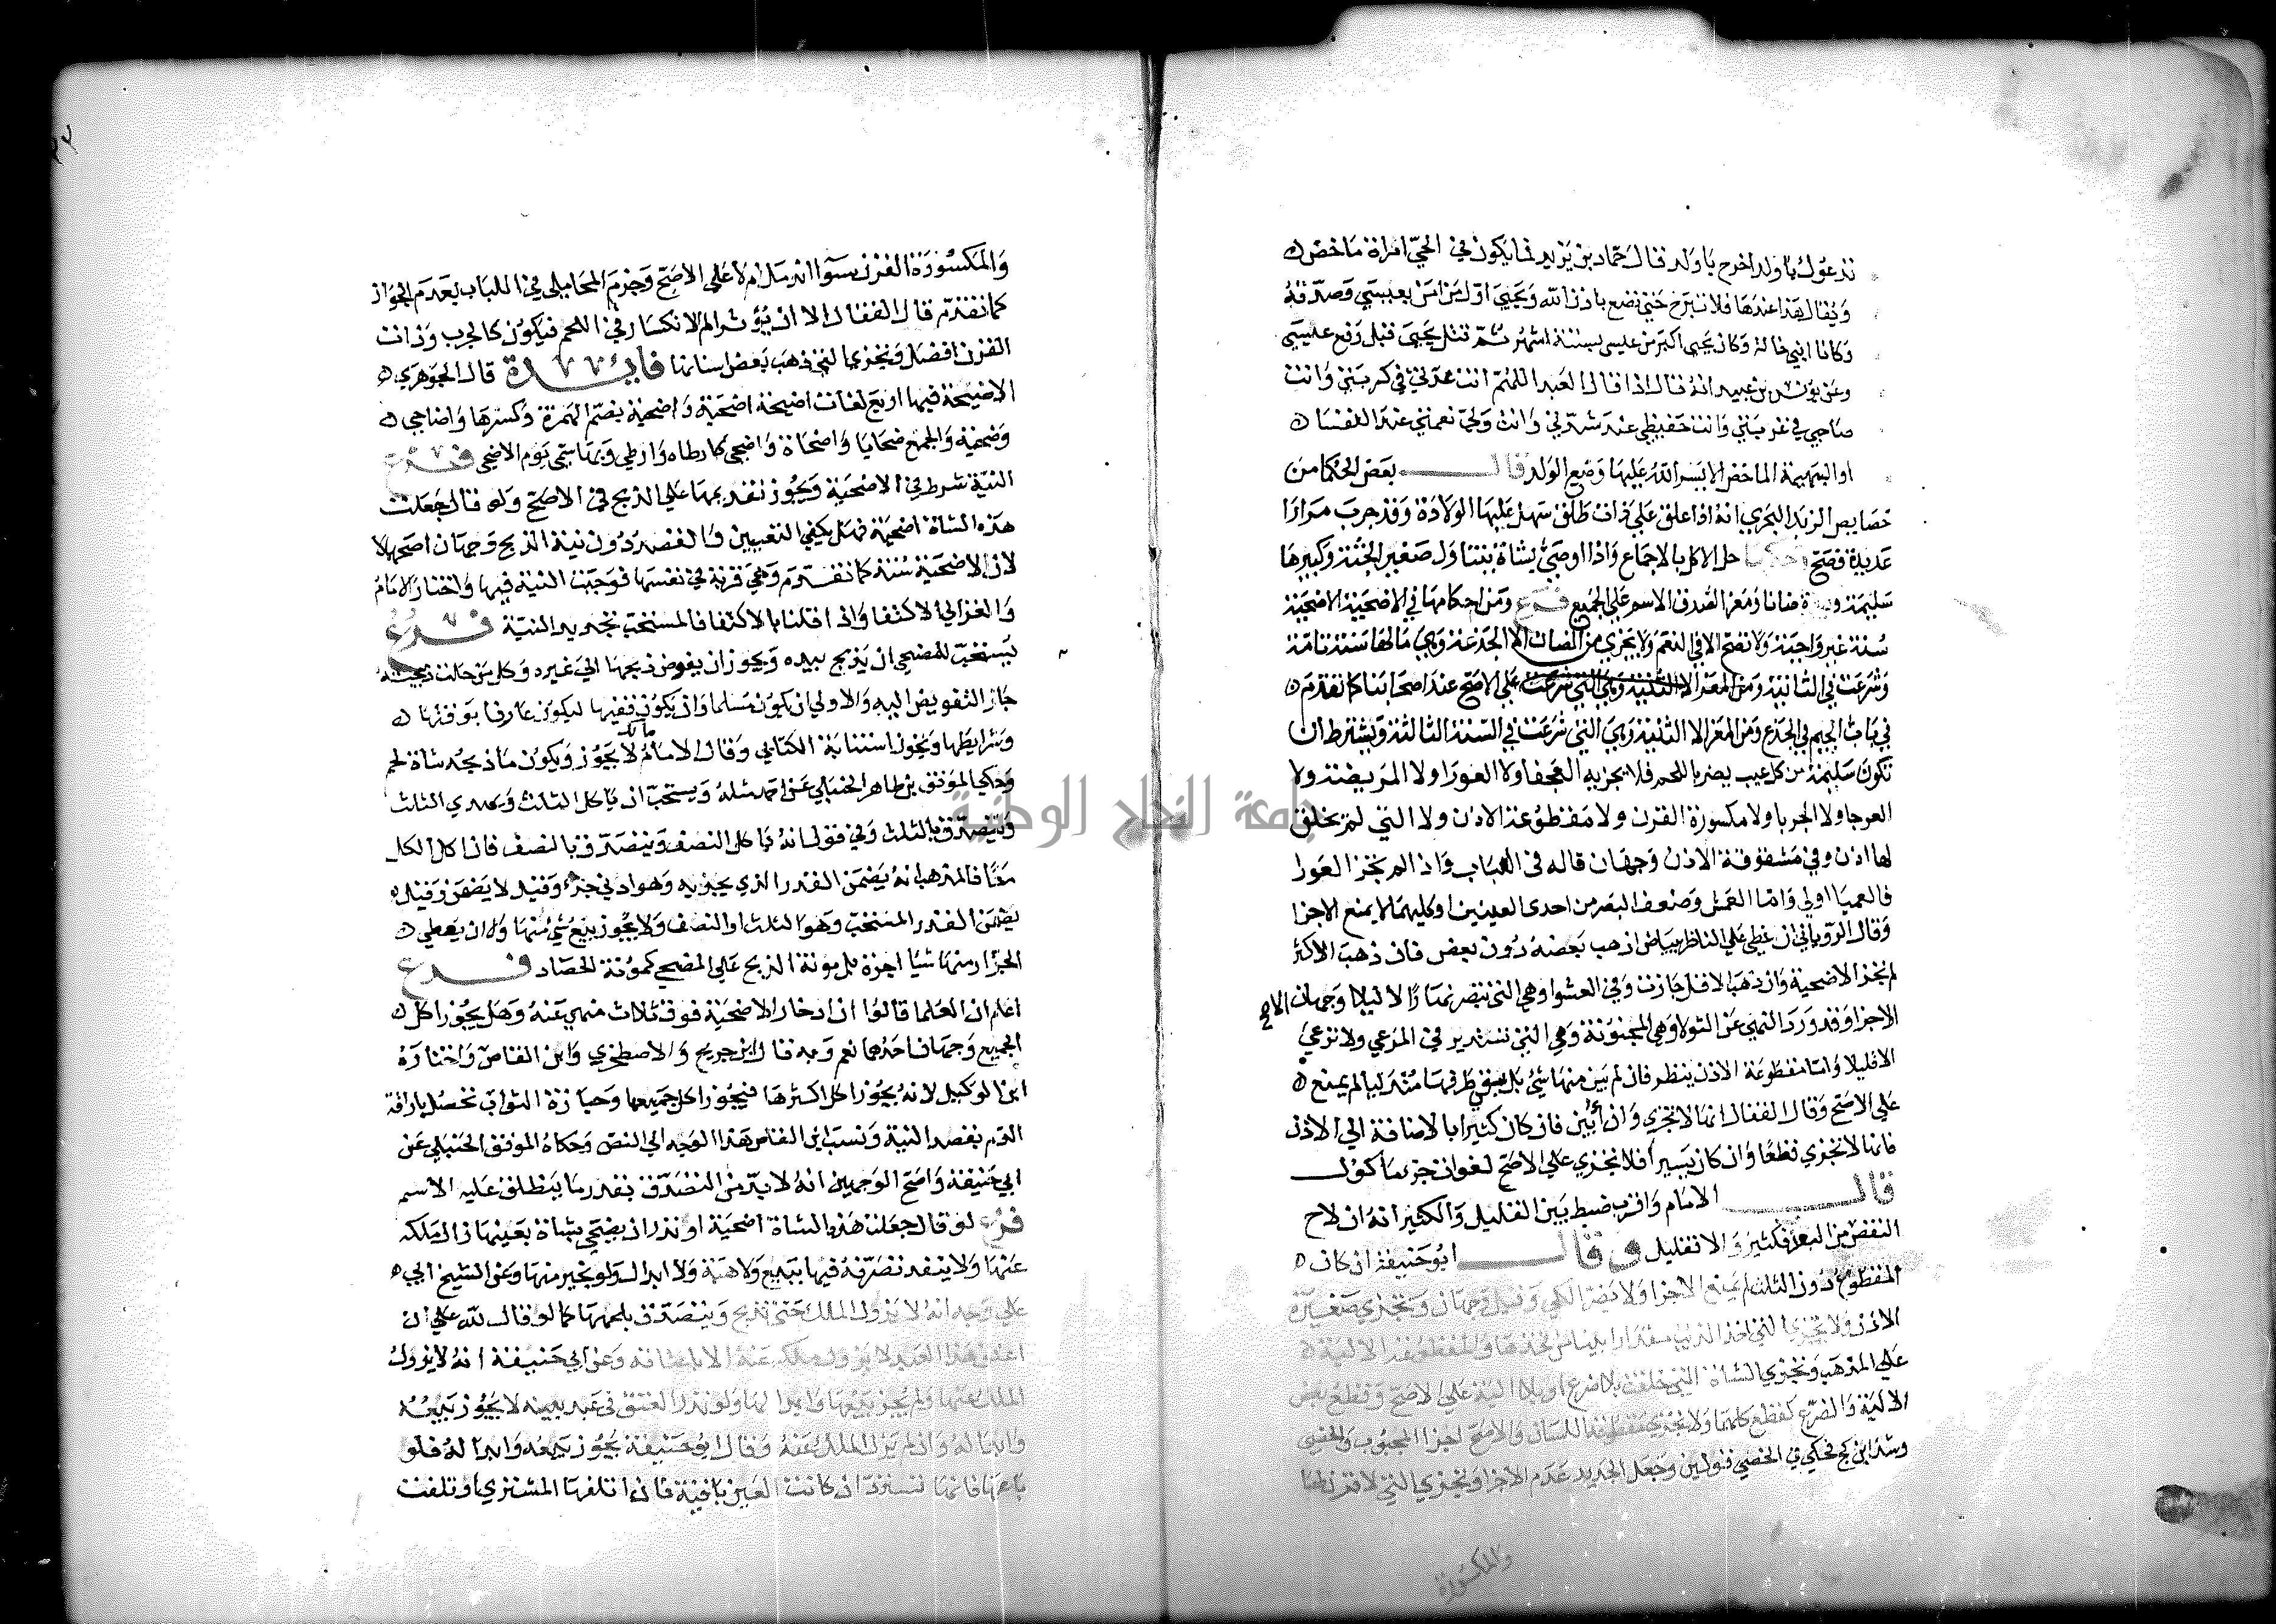 تدعوك يا ولد اخرج يا ولد قال حماد بن يزيد فما يكون في الحي امراة ماخض
ويقال هذا عندها فلا تبرح حتي تضع باذن الله ويحيي اول من امن بعيسي وصدقه
وكانا ابني خالة وكان يحيي اكبر من عيسي بستة اشهر ثم قتل يحيي قبل رفع عيسي
وعن يونس بن عبيد انه قال اذا قال العبد اللهم انت عدتي في كربتي وانت
صاحبي في غربتي وانت حفيظي عند شدتي وانت ولي نعمتي عند النفسا
او البهيمة الماخض الا يسر الله عليها وضع الولد قال بعض الحكما من
خصايص الزبد البحري انه اذا علق علي ذات طلق سهل عليها الولادة وقد جرب مرارا
عديدة فصح وحكمها حل الاكل بالاجماع واذا اوصي بشاة يتناول صغير الجثة وكبيرها
سليمة ضانا ومعزا لصدق الاسم علي الجميع فرع ومن احكامها في الاضحية الاضحية
سنة غير واجبة ولا تصح الا في النعم ولا يجزي من الضان الا الجذعة وهي مالها سنة تامة
وشرعت في الثانية ومن المعز الا الثنية وهي التي شرعت علي الاصح عند اصحابنا كما تقدم
في باب الجيم في الجذع ومن المعز الا الثنية وهي التي شرعت في السنة الثالثة ويشترط ان
تكون سليمة من كل عيب يضر باللحم فلا تجزيه العجفا ولا العورا ولا المريضة ولا
العرجا ولا الجربا ولا مكسورة القرن ولا مقطوعة الاذن ولا التي لم يخلق
لها اذن وفي مشقوقة الاذن وجهان قاله في العباب واذا لم تجز العورا
فالعميا اولي واما العمش وضعف البصر من احدي العينين او كليهما لا يمنع الاجزا
وقال الروياني ان غطي علي الناظر بياض اذهب بعضه دون بعض فان ذهب الاكثر
لم تجز الاضحية وان ذهب الاقل جازت وفي العشوا وهي التي تبصر نهارا لا ليلا وجهان الاصح
الاجزا وقد ورد النهي عن الثولا وهي المجنونة وهي التي تستدير في المرعي ولا ترعي
الا قليلا واما مقطوعة الاذن ينظر فان لم يبن منها شي بل بقي طرفها متدليا لم يمنع
علي الاصح وقال القفال انها لا تجزي وان أبين فان كان كثيرا بالاضافة الي الاذن
فانها لا تجزي قطعا وان كان يسيرا فلا تجزي علي الاصح لفوات جز ماكول
قال الامام واقرب ضبط بين القليل والكثير انه ان لاح
النقص من البعد فكثير والا فقليل وقال ابو حنيفة ان كان
المقطوع دون الثلث لم يمنع الاجزا ولا يضر الكي وقيل وجهان وتجزي صغيرة
الاذن ولا تجزي التي اخذ الذيب مقدارا بينا من فخذها والمقطوعة الالية
علي المذهب وتجزي الشاة التي خلقت بلا ضرع او بلا الية علي الاصح وقطع بعض
الالية والضرع كقطع كلها ولا تجزي مقطوعة اللسان والاصح اجزا المجبوب والخصي
وشذ ابن كج فحكي في الخصي قولين وجعل الجديد عدم الاجزا وتجزي التي لا قرن لها
والمكسورة
والمكسورة القرن سوا اندمل ام لا علي الاصح وجزم المحاملي في اللباب بعدم الجواز
كما تقدم قال القفال الا ان يؤثر الم الانكسار في اللحم فيكون كالجرب وذات
القرن افضل وتجزي التي ذهب بعض اسنانها فايدة قال الجوهري
الاضحية فيها اربع لغات اضيحة اضحية واضحية بضم الهمزة وكسرها واضاحي
وضحية والجمع ضحايا واضحاة واضحي كارطاه وارطي وبها سمي يوم الاضحي فرع
النية شرط في الاضحية ويجوز تقديمها علي الذبح في الاصح ولو قال جعلت
هذه الشاة اضحية فهل يكفي التعيين والقصد دون نية الذبح وجهان اصحهما لا
لان الاضحية سنة كما تقدم وهي قربة في نفسها فوجبت النية فيها واختار الامام
والغزالي الاكتفا واذا قلنا بالاكتفا فالمستحب تجديد النية فرع
يستحب للمضحي ان يذبح بيده ويجوز ان يفوض ذبحها الي غيره وكل من حلت ذبيحته
جاز التفويض اليه والاولي ان يكون مسلما وان يكون فقيها ليكون عارفا بوقتها
وشرايطها ويجوز استنابة الكتابي وقال الامام مالك لا يجوز ويكون ما ذبحه شاة لحم
وحكي الموفق بن طاهر الحنبلي عن احمد مثله ويستحب ان ياكل الثلث ويهدي الثلث
ويتصدق بالثلث وفي قول انه ياكل النصف ويتصدق بالنصف فان اكل الكل
معا فالمذهب انه يضمن القدر الذي يجزيه وهو ادني جزء وقيل لا يضمن وقيل
يضمن القدر المستحب وهو الثلث او النصف ولا يجوز بيع شي منها ولا ان يعطي
الجزار منها شيا اجرة بل مونة الذبح علي المضحي كمونة الحصاد فرع
اعلم ان العلما قالوا ان ادخار الاضحية فوق ثلاث منهي عنه وهل يجوز اكل
الجميع وجهان احدهما نعم وبه قال ابن جريح والاصطخري وابن القاص واختاره
ابن الوكيل لانه يجوز اكل اكثرها فيجوز اكل جميعها وحيازة الثواب تحصل باراقة
الدم بقصد النية ونسب ابن القاص هذا الوجه الي النص وحكاه الموفق الحنبلي عن
ابي حنيفة واصح الوجهين انه لا بد من التصدق بقدر ما ينطلق عليه الاسم
فرع لو قال جعلت هذه الشاة اضحية او نذر ان يضحي بشاة بعينها زال ملكه
عنها ولا ينفد تصرفه فيها ببيع ولا هبة ولا ابدال ولو بخير منها وعن الشيخ ابي
علي وجه انه لا يزول الملك حتي تذبح ويتصدق بلحمها كما لو قال لله علي ان
اعتق هذا العبد لا يزول ملكه عنه الا باعتاقه وعن ابي حنيفة انه لا يزول
الملك عنها ولم يجز بيعها وابدالها ولو نذر العتق في عبد بعينه لا يجوز بيعه
وابداله وان لم يزل الملك عنه وقال ابو حنيفة يجوز بيعه وابداله فلو
باعها فانها تسترد ان كانت العين باقية فان اتلفها المشتري او تلفت
جامعة النجاح الوطنية